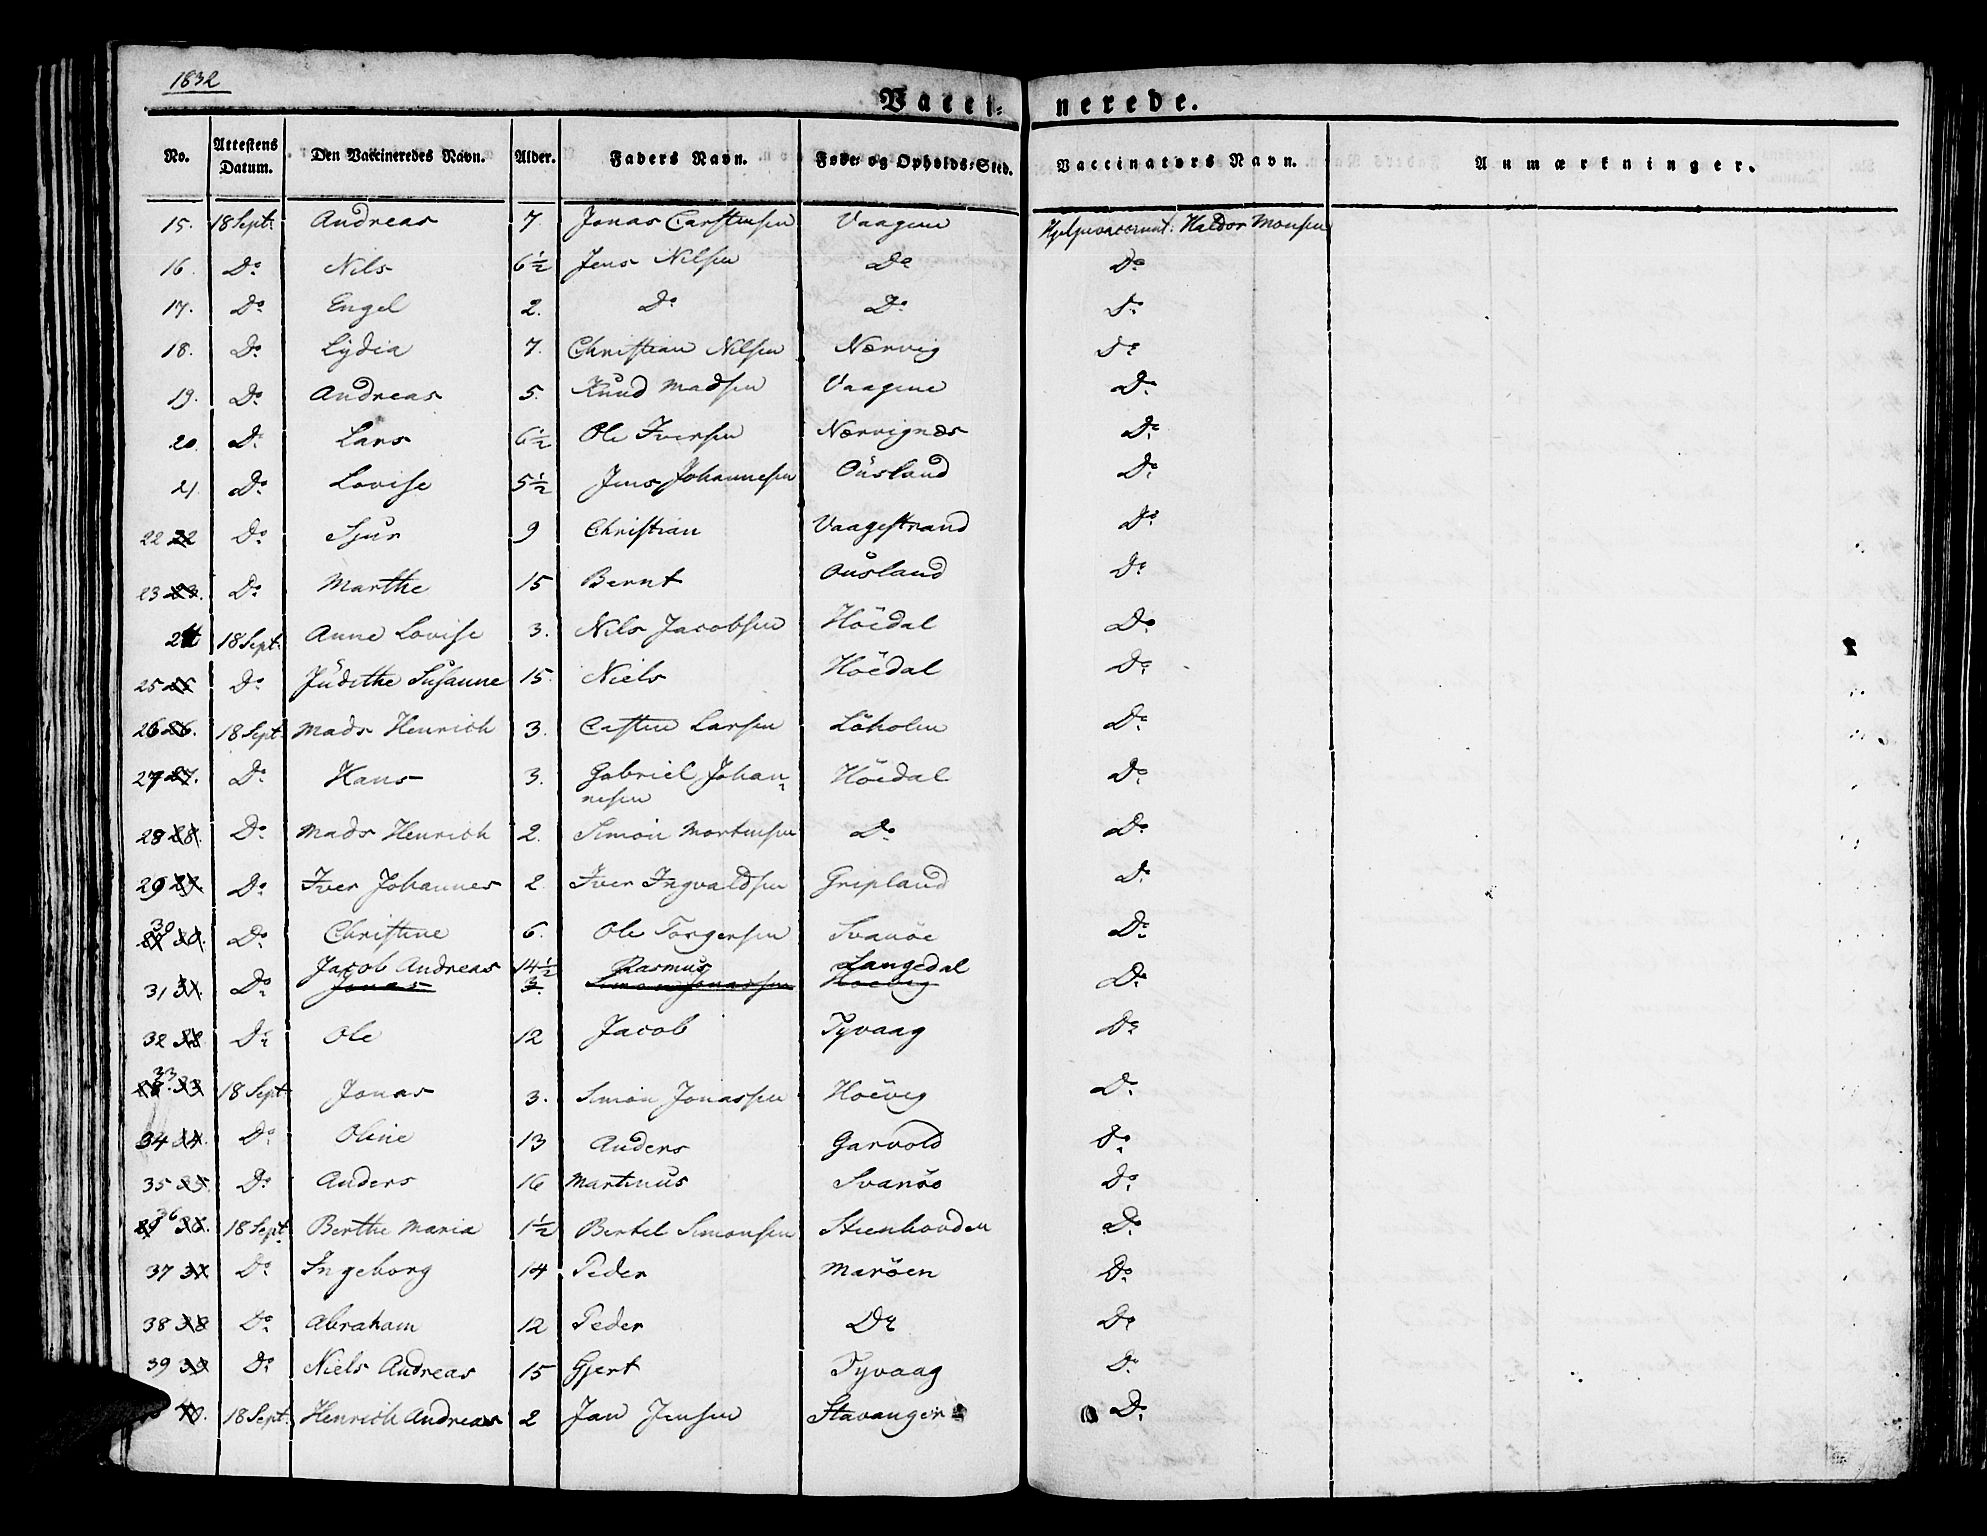 1832
Vacci= nerede.
No. Attestens Datum. Den Vaccineredes Navn. Alder. Faders Navn. Føde= og Opholds=Sted. Vaccinateurs Navn. Anmærkninger.
15. 18 Sept: Andreas 7. Jonas Carstensen Vaagene Hjelpevaccinat: Haldor Monsen
16. Do Nils 6½ Jens Nilsen Do Do
17. Do Engel 2. Do Do Do
18. Do Lydia 7. Christian Nilsen Nærvig Do
19. Do Andreas 5. Knud Madsen Vaagene Do
20. Do Lars 6½ Ole Iversen Nærvignæs Do
21. Do Lovise 5½ Jens Johannesen Ousland Do
22 22 Do Sjur 9 Christian Vaagestrand Do
23 23. Do Marthe 15 Bernt Ousland Do
24 18 Sept: Anne Lovise 3. Nils Jacobsen Höedal Do
25 25 Do Judithe Susanne 15. Niels Höedal Do
26 26. 18 Sept. Mads Henrich 3. Casten Larsen Löholm Do
27 27. Do Hans 3. Gabriel Johan-
nesen Höedal Do
28 28. Do Mads Henrich 2. Simon Mortensen Do Do
29 29. Do Iver Johannes 2. Iver Ingvaldsen Gripland Do
30 30. Do Christine 6. Ole Torgersen Svanöe Do
Jacob Andreas 14½ Rasmus Langedal
31 31 Do Jonas 3. Simon Jonassen Hoevig Do
32 32 Do Ole 12 Jacob Tyvaag Do
33 33 18 Sept Jonas 3. Simon Jonassen Hoëvig Do
34 34. Do Oline 13 Anders Garvold Do
35 35. Do Anders 16 Martinus Svanöe Do
36 36. 18 Sept. Berthe Maria 1½ Bertel Simonsen Stenhovden Do
37 37 Do Ingeborg 14 Peder Maröen Do
38 38 Do Abraham 12 Peder Do Do
39 39 Do Niels Andreas 15 Gjert Tyvaag Do
40. 18 Sept. Henrich Andreas 2 Jan Jensen Stavanger Do